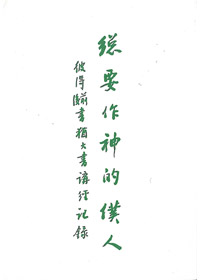 總要作神的僕人
彼得前書猶大書講經記錄